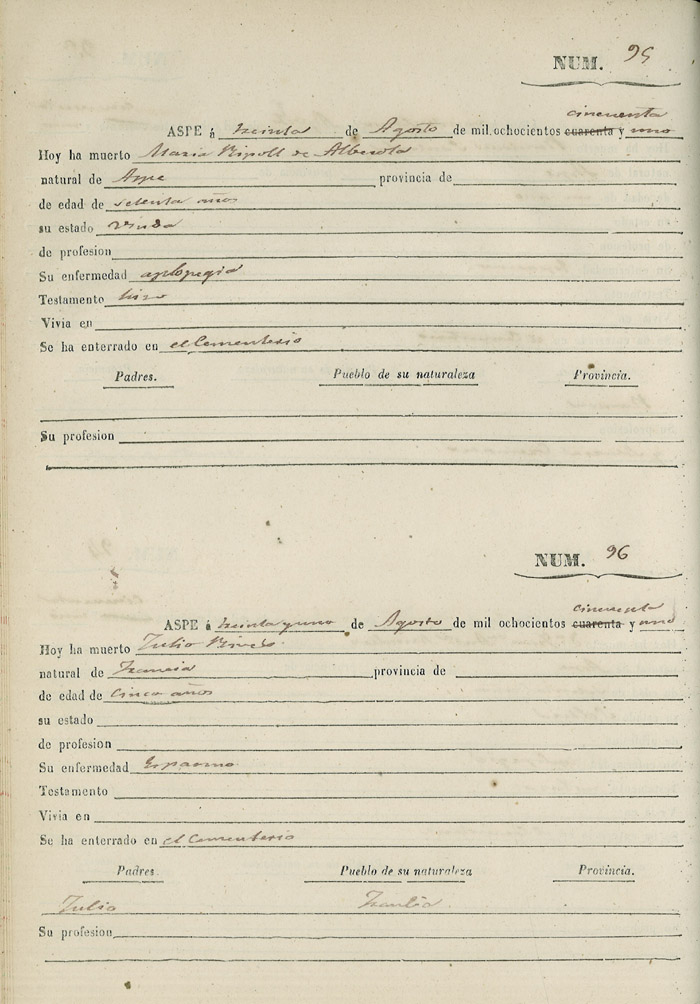 NUM. 95
cincuenta
ASPE á treinta de Agosto de mil ochocientos cuarenta y uno
Hoy ha muerto Maria Ripoll de Alberola
natural de Aspe provincia de
de edad de setenta años
su estado viuda
de profesion
Su enfermedad aplopegia
Testamento hizo
Vivia en
Se ha enterrado en el Cementerio
Padres. Pueblo de su naturaleza Provincia.
Su profesion
NUM. 96
cincuenta
ASPE á treinta y uno de Agosto de mil ochocientos cuarenta y uno
Hoy ha muerto Julio
natural de Francia provincia de
de edad de Cinco años
su estado
de profesion
Su enfermedad Espasmo
Testamento
Vivia en
Se ha enterrado en el Cementerio
Padres. Pueblo de su naturaleza Provincia.
Julio Francia
Su profesion